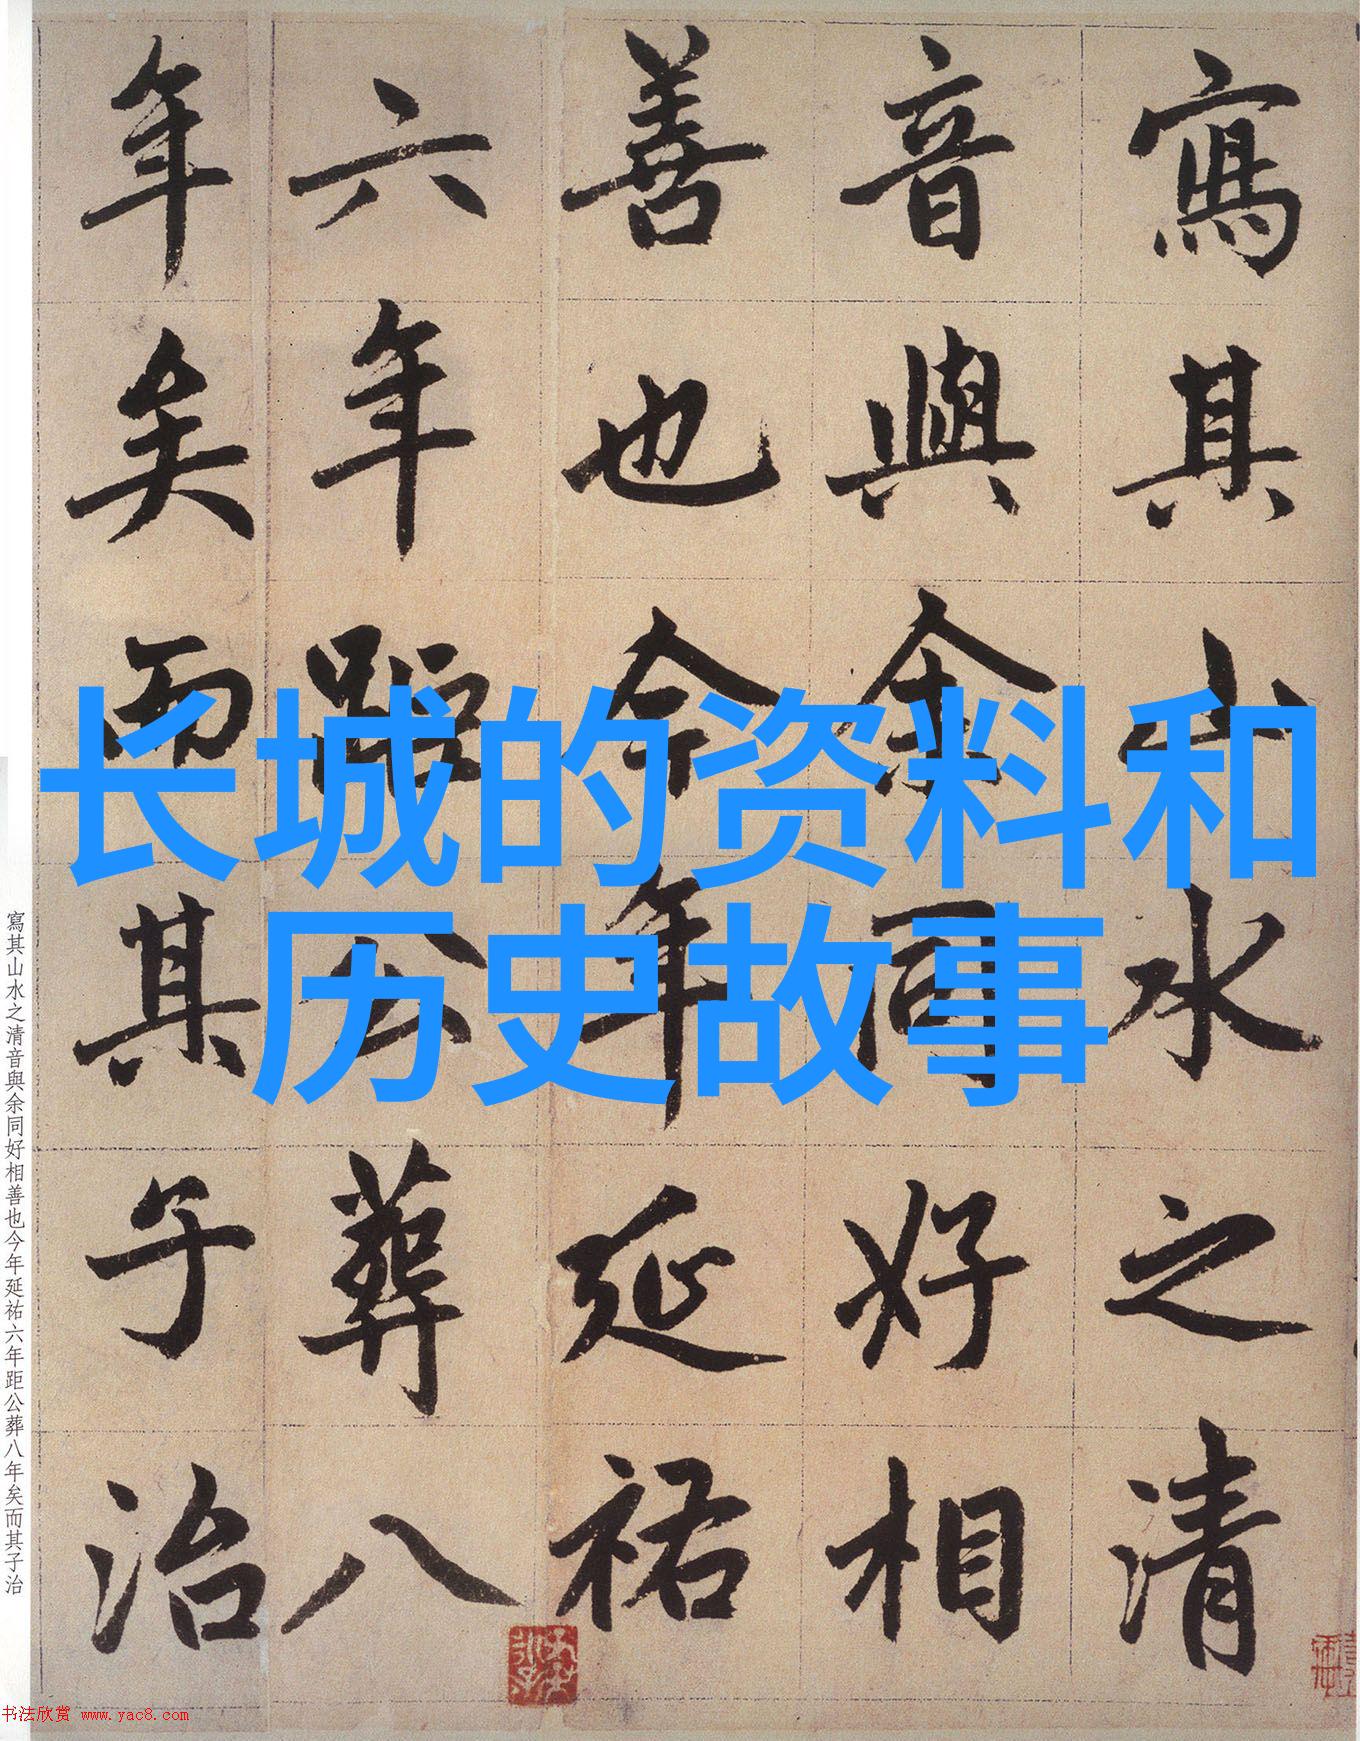 寫其山水之清
音與余同好相
善也今年延祐
六年距公葬八
年矣而其子治
长城的资料和
历史故事
寫其山水之清音與余同好相善也今年延祐六年距公葬八年矣而其子治
书法欣赏 www.yac8.com